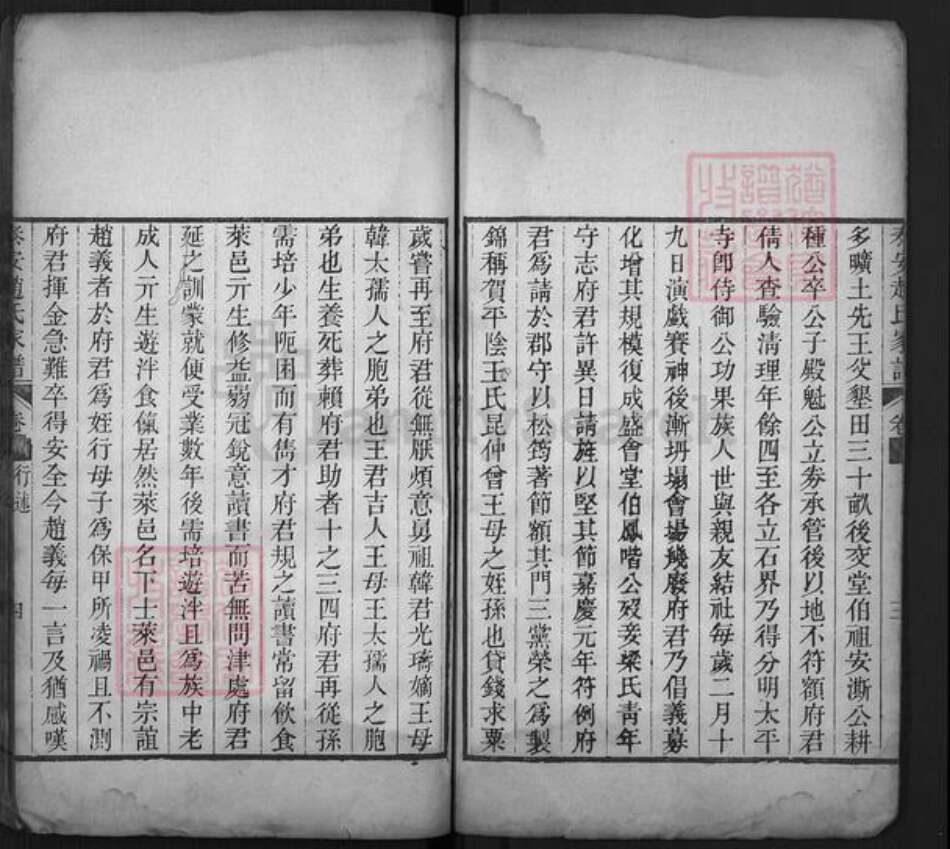 多曠土先王父墾田三十畝後交堂伯祖安澌公耕
種公卒公子殿魁公立券承管後以地不符額府君
倩人查驗清理年餘四至各立石界乃得分明太平
寺卽侍御公功果族人世與親友結社每歲二月十
九日演戲賽神後漸坍塌會場殘廢府君乃倡義募
化增其規模復成盛會堂伯鳳喈公歿妾梁氏青年
守志府君許異日請旌以堅其節嘉慶元年符例府
君爲請於郡守以松筠著節額其門三黨榮之爲製
錦稱賀平陰王氏昆仲曾王母之姪孫也貸錢求粟
歲嘗再至府君從無厭煩意舅祖韓君光璹嫡王母
韓太孺人之胞弟也王君吉人王母王太孺人之胞
弟也生養死葬賴府君助者十之三四府君再從孫
需培少年阨困而有雋才府君規之讀書常留飲食
萊邑亓生修益弱冠銳意讀書而苦無問津處府君
延之訓蒙就便受業數年後需培遊泮且爲族中老
成人亓生遊泮食餼居然萊邑名下士萊邑有宗誼
趙義者於府君爲姪行母子爲保甲所凌禍且不測
府君揮金急難卒得安全今趙義每一言及猶感嘆
泰安趙氏家譜 卷 行述 四